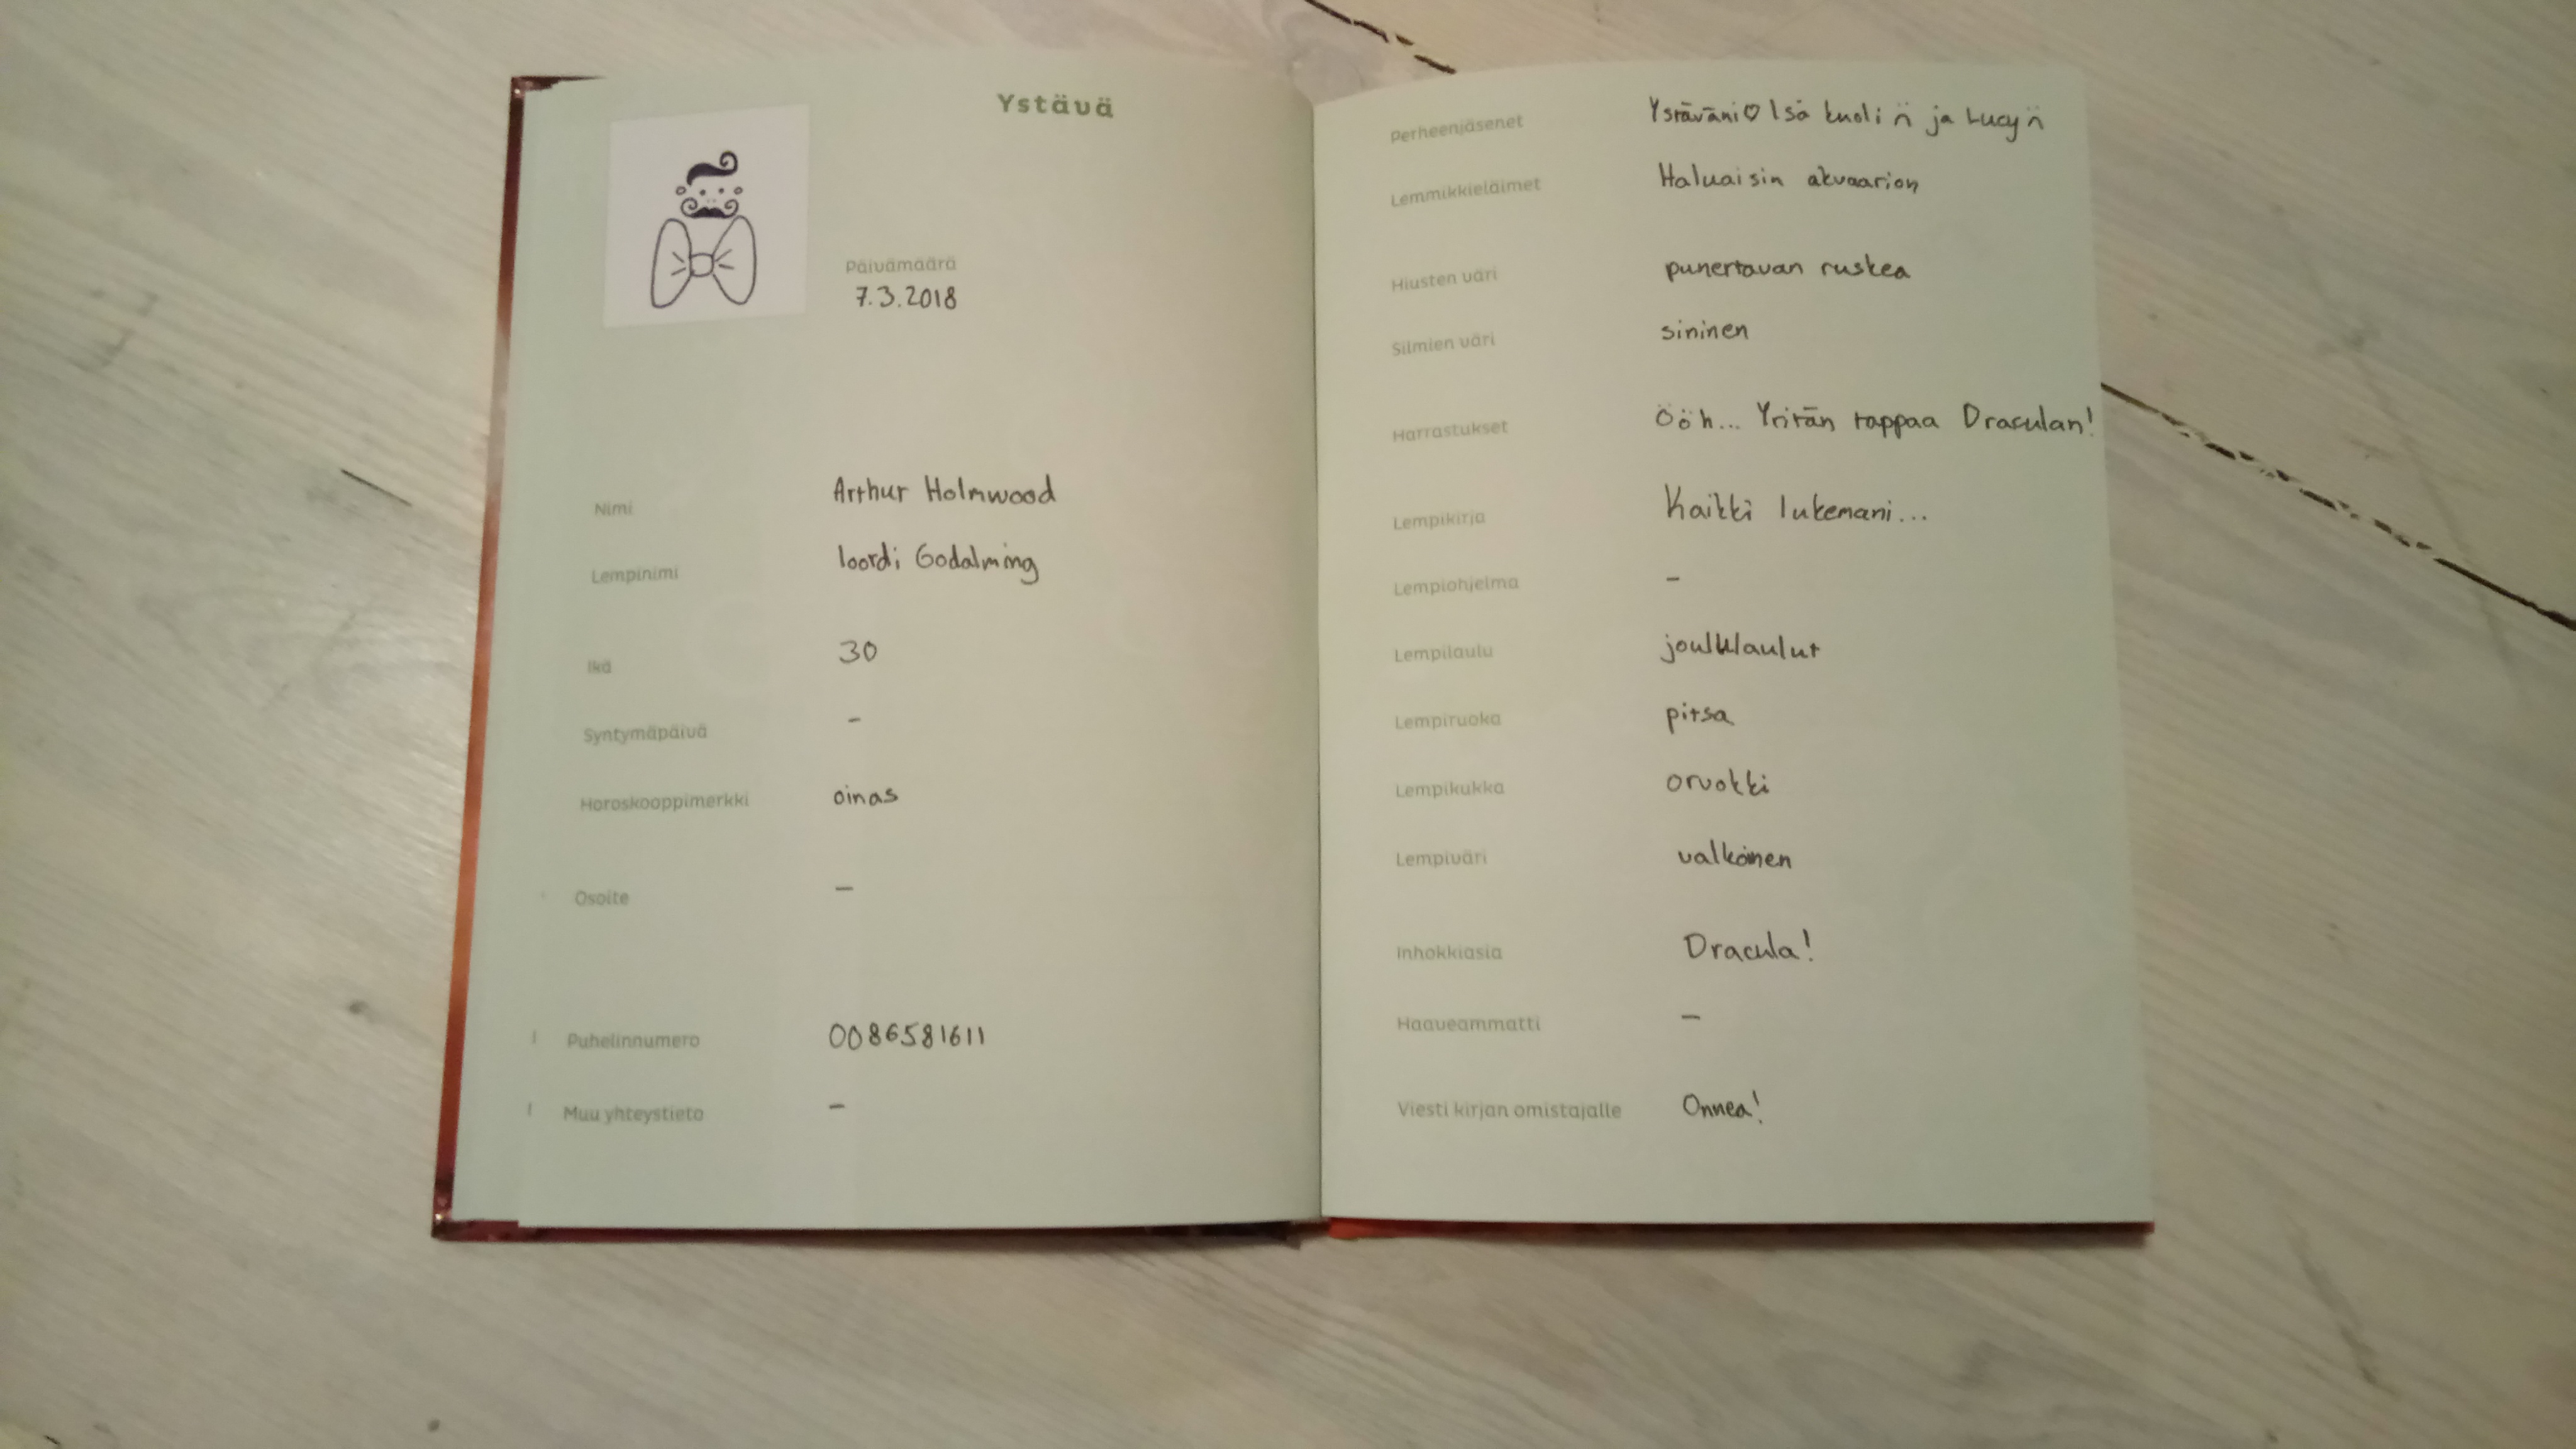 Ystävä
Päivämäärä
7.3.2018
Nimi Arthur Holmwood
Lempinimi loordi Godalming
Ikä 30
Syntymäpäivä –
Horoskooppimerkki oinas
Osoite –
Puhelinnumero 0086581611
Muu yhteystieto –
Perheenjäsenet Ystäväni♡ Isä kuoli :( ja Lucy :(
Lemmikkieläimet Haluaisin akvaarion
Hiusten väri punertavan ruskea
Silmien väri sininen
Harrastukset Ööh... Yritän tappaa Draculan!
Lempikirja Kaikki lukemani...
Lempiohjelma –
Lempilaulu joululaulut
Lempiruoka pitsa
Lempikukka orvokki
Lempiväri valkoinen
Inhokkiasia Dracula!
Haaveammatti –
Viesti kirjan omistajalle Onnea!